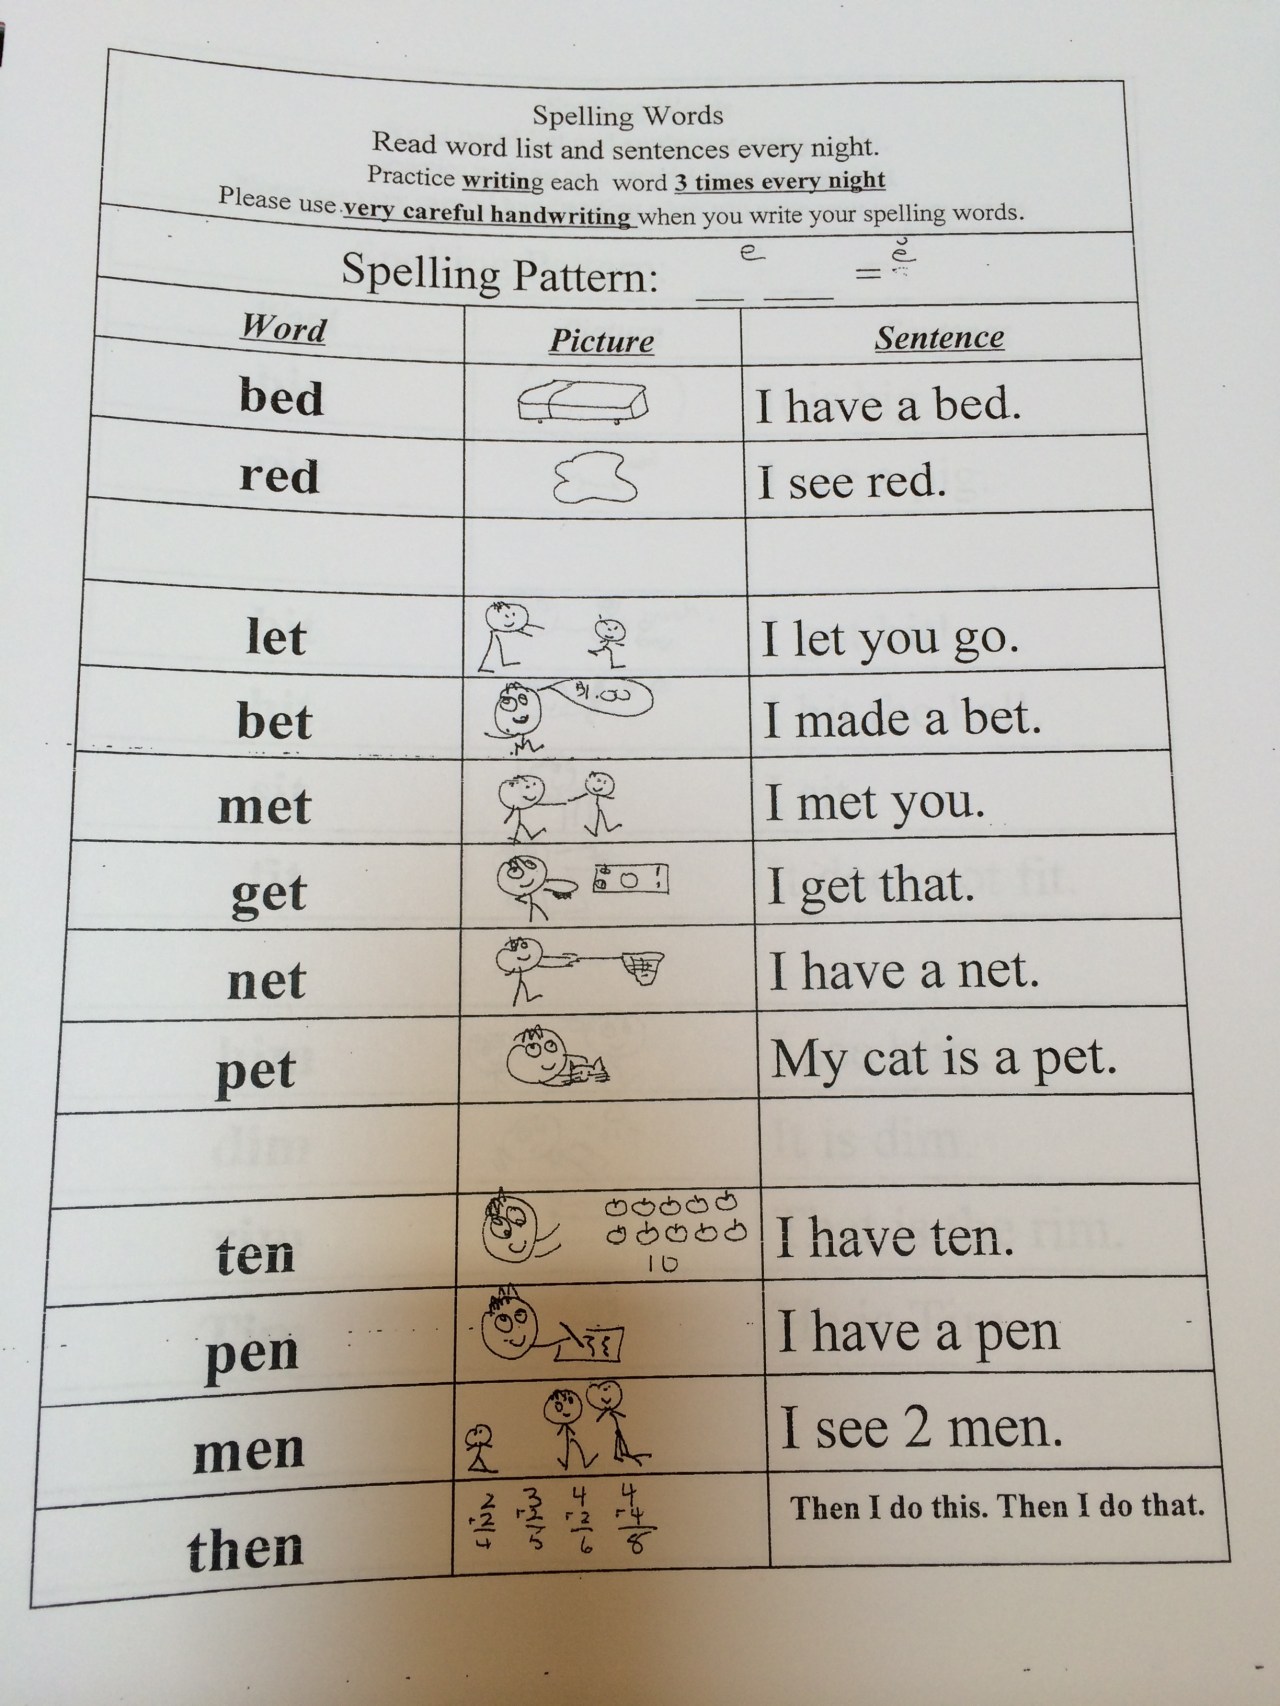 Spelling Words
Read word list and sentences every night.
Practice writing each word 3 times every night
Please use very careful handwriting when you write your spelling words.
Spelling Pattern: __ e ___ = ĕ
Word Picture Sentence
bed I have a bed.
red I see red.
let I let you go.
bet $1.00 I made a bet.
met I met you.
get I get that.
net I have a net.
pet My cat is a pet.
ten 10 I have ten.
pen I have a pen
men I see 2 men.
2 3 4 4
+2 +2 +2 +4
4 5 6 8
then Then I do this. Then I do that.